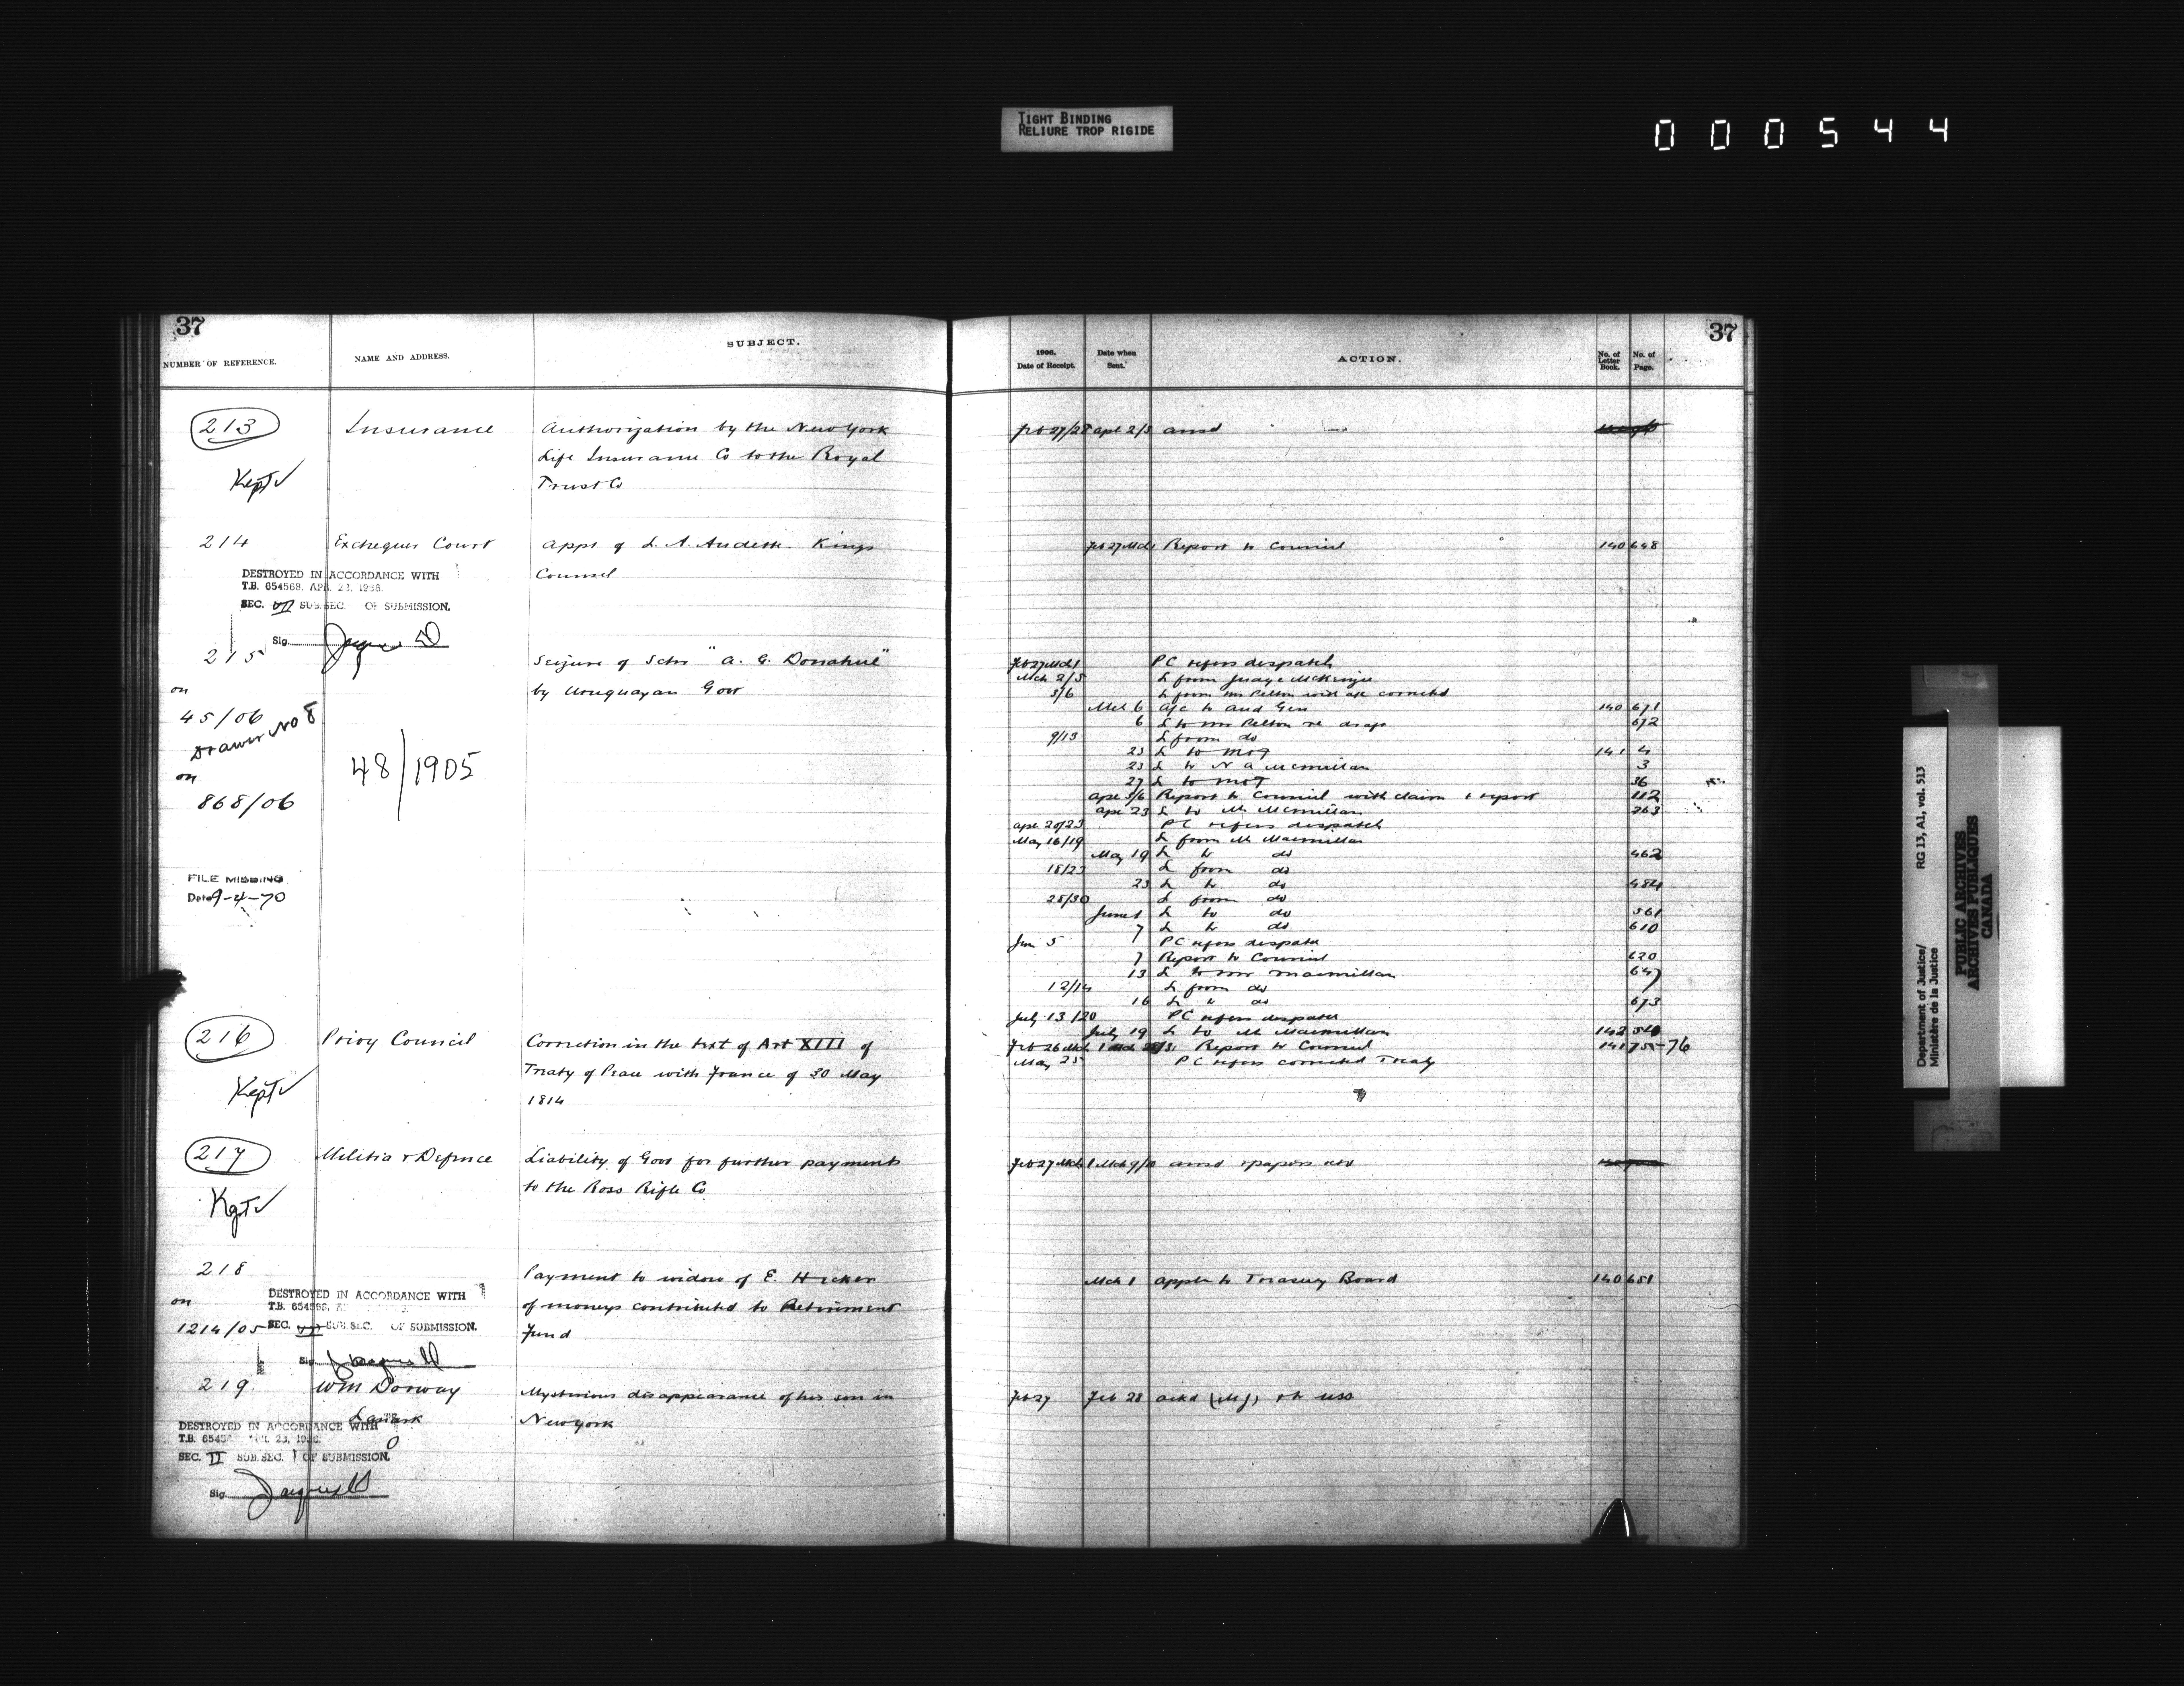 TIGHT BINDING
RELIURE TROP RIGIDE
000544
37
NUMBER OF REFERENCE.
NAME AND ADDRESS.
SUBJECT.
213
Insurance
Authorization by the New York
Life Insurance Co to the Royal
Trust Co
Kept ✓
214
Exchequer Court
Appt of L. A. Audette Kings
Counsel
DESTROYED IN ACCORDANCE WITH
T.B. 654568, APR. 23, 1936.
SEC. VII SUB. SEC. OF SUBMISSION.
Sig.
215
Seizure of Schr "A. G. Donahue"
by Uruguayan Govt
on
45/06
Drawer No 8
on
868/06
48/1905
FILE MISSING
Date 9-4-70
216
Privy Council
Correction in the text of Art XIII of
Treaty of Peace with France of 30 May
1814
Kept ✓
217
Militia & Defence
Liability of Govt for further payments
to the Ross Rifle Co
Kept ✓
218
Payment to widow of E. Hicker
of moneys contributed to Retirement
Fund
on
1214/05
DESTROYED IN ACCORDANCE WITH
T.B. 654568,
SEC. VII SUB. SEC. OF SUBMISSION.
Sig.
219
Wm Dorway
Lanark
O
Mysterious disappearance of his son in
New York
DESTROYED IN ACCORDANCE WITH
T.B. 65456 APR. 23, 1936.
SEC. II SUB. SEC. 1 OF SUBMISSION.
Sig.
37
1906.
Date of Receipt.
Date when
Sent.
ACTION.
No. of
Letter
Book.
No. of
Page.
Feb 27/28 Apl 2/3 ansd
Feb 27 Mch 1 Report to Council 140 648
Feb 27 Mch 1 PC refers despatch
Mch 2/5 L from Judge McKenzie
5/6 L from Mr Pelton with a/c corrected
Mch 6 a/c to Aud Gen 140 671
6 L to Mr Pelton re draft 672
9/13 L from do
23 L to M of J 141 4
23 L to N A McMillan 3
27 L to M of J 36
Apl 5/6 Report to Council with claim & report 112
Apl 23 L to Mr McMillan 263
Apl 20/23 PC refers despatch
May 16/19 L from Mr Macmillan
May 19 L to do 462
18/23 L from do
23 L to do 484
28/30 L from do
June 1 L to do 561
7 L to do 610
Jun 5 PC refers despatch
7 Report to Council 620
13 L to Mr Macmillan 647
12/14 L from do
16 L to do 673
July 13/20 PC refers despatch
July 19 L to Mr Macmillan 142
Feb 26 Mch 1 Report to Council 141 755-76
May 25 PC refers corrected Treaty
Feb 27 Mch 1 Mch 9/10 ansd & papers retd
Mch 1 appln to Treasury Board 140 651
Feb 27 Feb 28 ackd (MJ) & to USS
Department of Justice/
Ministère de la Justice
RG 13, A1, vol. 513
PUBLIC ARCHIVES
ARCHIVES PUBLIQUES
CANADA